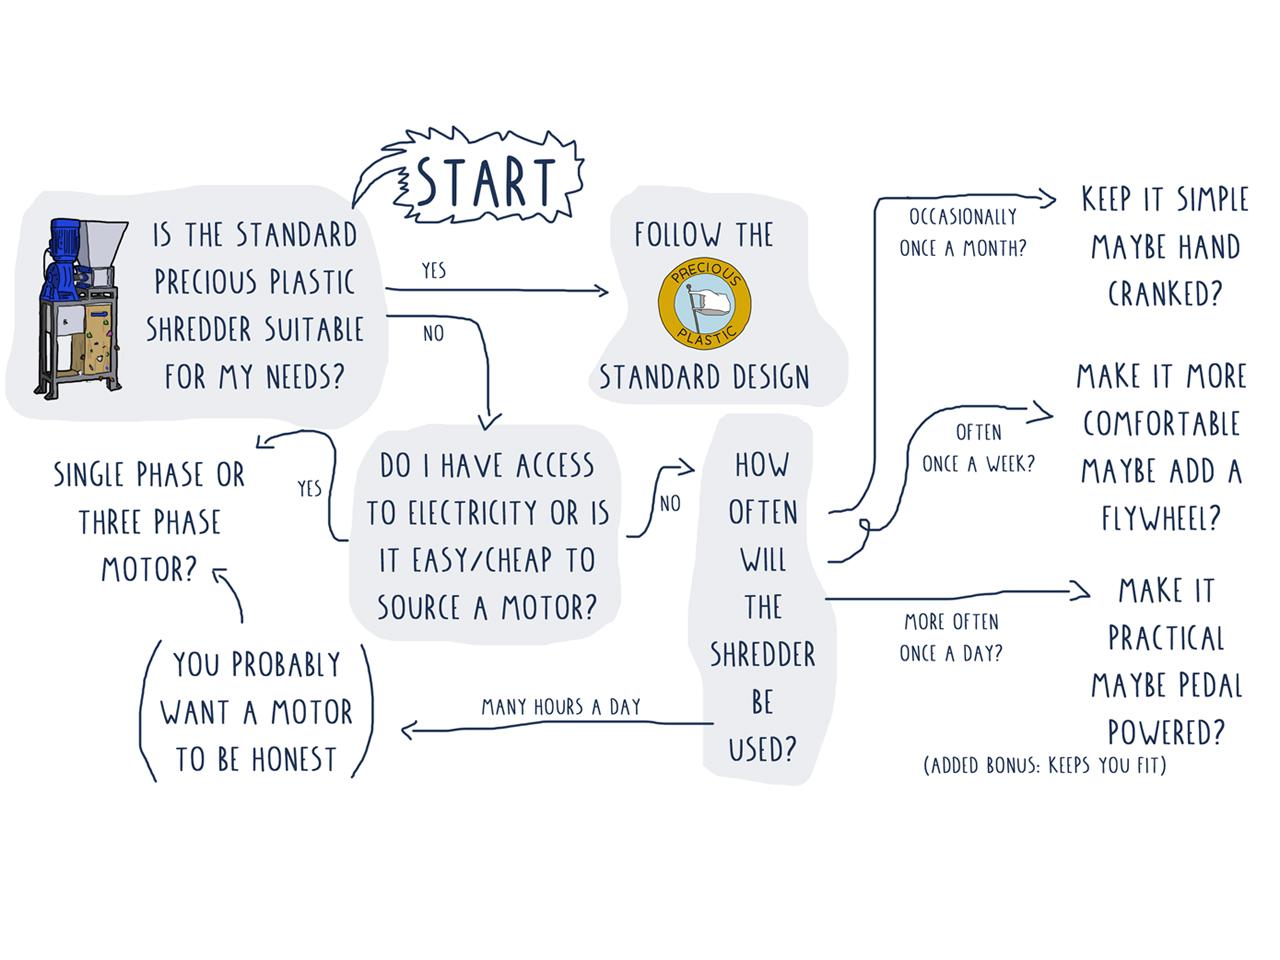 START
IS THE STANDARD
PRECIOUS PLASTIC
SHREDDER SUITABLE
FOR MY NEEDS?
YES
NO
FOLLOW THE
PRECIOUS
PLASTIC
STANDARD DESIGN
DO I HAVE ACCESS
TO ELECTRICITY OR IS
IT EASY/CHEAP TO
SOURCE A MOTOR?
YES
SINGLE PHASE OR
THREE PHASE
MOTOR?
NO
HOW
OFTEN
WILL
THE
SHREDDER
BE
USED?
OCCASIONALLY
ONCE A MONTH?
KEEP IT SIMPLE
MAYBE HAND
CRANKED?
OFTEN
ONCE A WEEK?
MAKE IT MORE
COMFORTABLE
MAYBE ADD A
FLYWHEEL?
MORE OFTEN
ONCE A DAY?
MAKE IT
PRACTICAL
MAYBE PEDAL
POWERED?
(ADDED BONUS: KEEPS YOU FIT)
MANY HOURS A DAY
(YOU PROBABLY
WANT A MOTOR
TO BE HONEST)